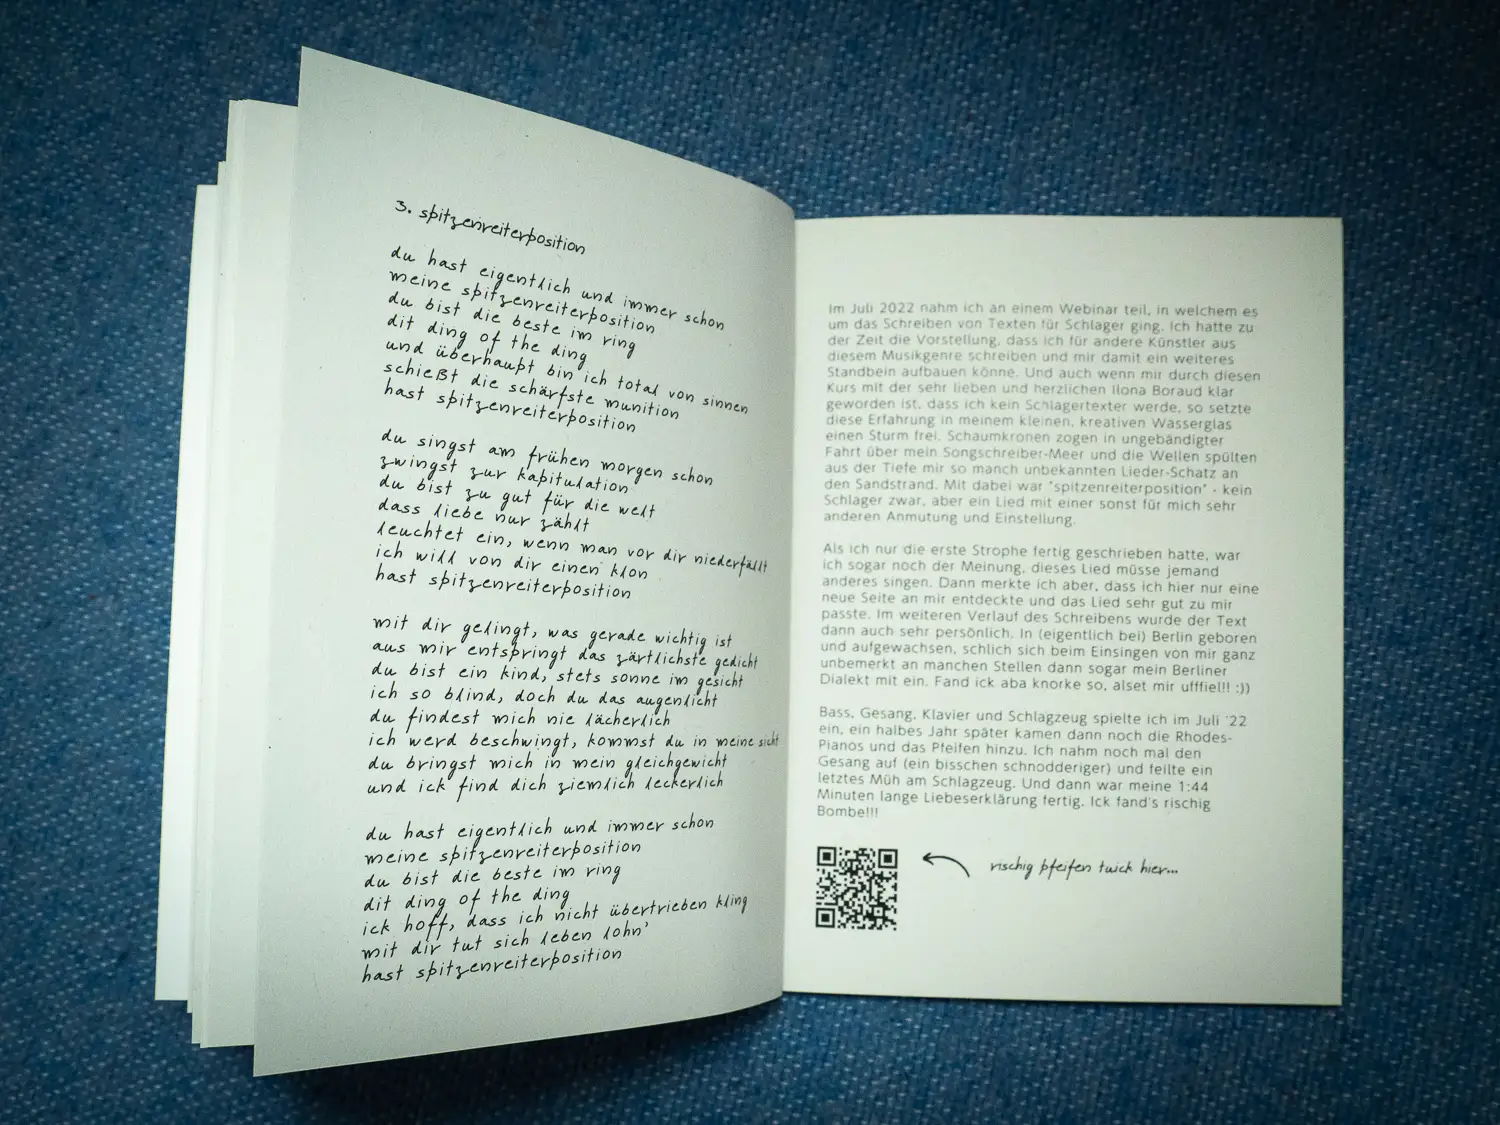 3. spitzenreiterposition
du hast eigentlich und immer schon
meine spitzenreiterposition
du bist die beste im ring
dit ding of the ding
und überhaupt bin ich total von sinnen
schießt die schärfste munition
hast spitzenreiterposition
du singst am frühen morgen schon
zwingst zur kapitulation
du bist zu gut für die welt
dass liebe nur zählt
leuchtet ein, wenn man vor dir niederfällt
ich will von dir einen klon
hast spitzenreiterposition
mit dir gelingt, was gerade wichtig ist
aus mir entspringt das zärtlichste gedicht
du bist ein kind, stets sonne im gesicht
ich so blind, doch du das augenlicht
du findest mich nie lächerlich
ich werd beschwingt, kommst du in meine sicht
du bringst mich in mein gleichgewicht
und ick find dich ziemlich leckerlich
du hast eigentlich und immer schon
meine spitzenreiterposition
du bist die beste im ring
dit ding of the ding
ick hoff, dass ich nicht übertrieben kling
mit dir tut sich leben lohn'
hast spitzenreiterposition
Im Juli 2022 nahm ich an einem Webinar teil, in welchem es
um das Schreiben von Texten für Schlager ging. Ich hatte zu
der Zeit die Vorstellung, dass ich für andere Künstler aus
diesem Musikgenre schreiben und mir damit ein weiteres
Standbein aufbauen könne. Und auch wenn mir durch diesen
Kurs mit der sehr lieben und herzlichen Ilona Boraud klar
geworden ist, dass ich kein Schlagertexter werde, so setzte
diese Erfahrung in meinem kleinen, kreativen Wasserglas
einen Sturm frei. Schaumkronen zogen in ungebändigter
Fahrt über mein Songschreiber-Meer und die Wellen spülten
aus der Tiefe mir so manch unbekannten Lieder-Schatz an
den Sandstrand. Mit dabei war "spitzenreiterposition" - kein
Schlager zwar, aber ein Lied mit einer sonst für mich sehr
anderen Anmutung und Einstellung.
Als ich nur die erste Strophe fertig geschrieben hatte, war
ich sogar noch der Meinung, dieses Lied müsse jemand
anderes singen. Dann merkte ich aber, dass ich hier nur eine
neue Seite an mir entdeckte und das Lied sehr gut zu mir
passte. Im weiteren Verlauf des Schreibens wurde der Text
dann auch sehr persönlich. In (eigentlich bei) Berlin geboren
und aufgewachsen, schlich sich beim Einsingen von mir ganz
unbemerkt an manchen Stellen dann sogar mein Berliner
Dialekt mit ein. Fand ick aba knorke so, alset mir ufffiel!! :))
Bass, Gesang, Klavier und Schlagzeug spielte ich im Juli '22
ein, ein halbes Jahr später kamen dann noch die Rhodes-
Pianos und das Pfeifen hinzu. Ich nahm noch mal den
Gesang auf (ein bisschen schnodderiger) und feilte ein
letztes Müh am Schlagzeug. Und dann war meine 1:44
Minuten lange Liebeserklärung fertig. Ick fand's rischig
Bombe!!!
rischig pfeifen tuick hier...